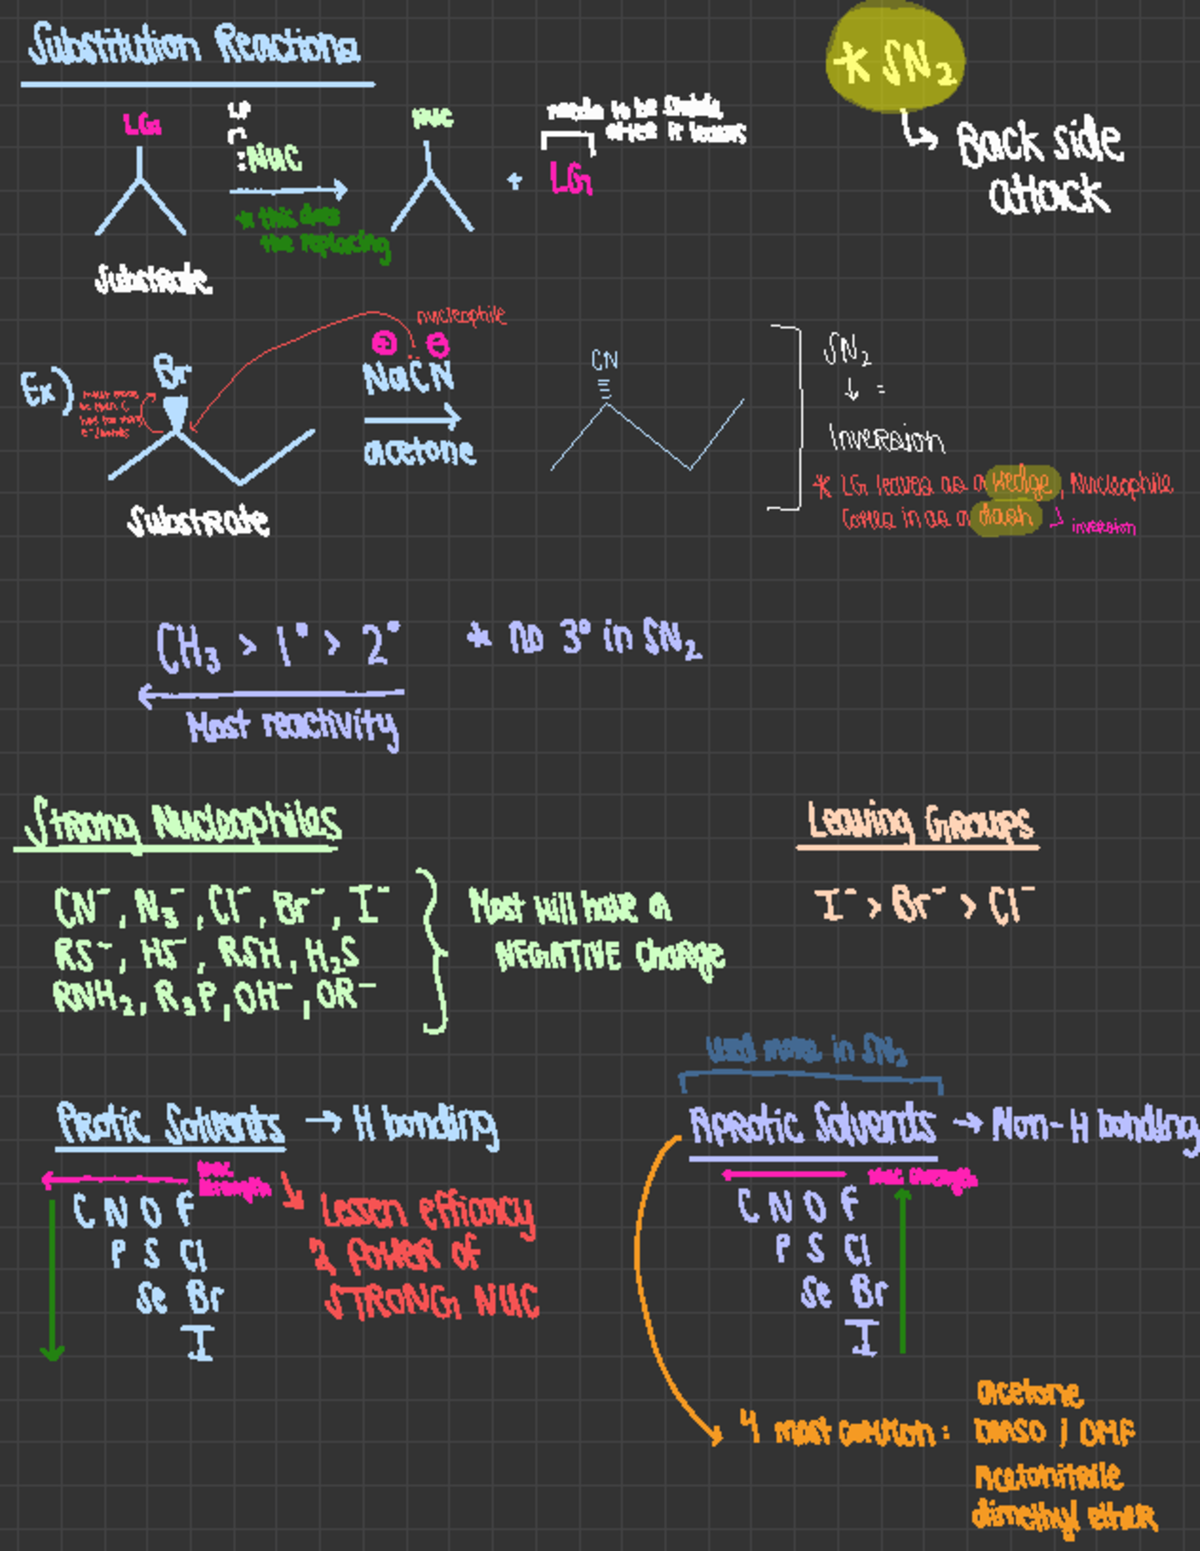 Substitution Reactions
* SN2
Back side
attack
LG
LP
:Nuc
* this does
the replacing
Nuc
+ LG
needs to be stable
after it leaves
Substrate
Ex)
Br
Substrate
nucleophile
+ -
NaCN
acetone
CN
SN2
↓ =
Inversion
* LG leaves as a wedge, Nucleophile
comes in as a dash
inversion
CH3 > 1° > 2° * no 3° in SN2
Most reactivity
Strong Nucleophiles
CN⁻, N3⁻, Cl⁻, Br⁻, I⁻
RS⁻, HS⁻, RSH, H2S
RNH2, R3P, OH⁻, OR⁻
Most will have a
NEGATIVE charge
Leaving Groups
I⁻ > Br⁻ > Cl⁻
Protic Solvents → H bonding
Nuc
strength
C N O F
P S Cl
Se Br
I
Lessen efficacy
& power of
STRONG NUC
Used more in SN2
Aprotic Solvents → Non-H bonding
Nuc strength
C N O F
P S Cl
Se Br
I
4 most common:
acetone
DMSO / DMF
Acetonitrile
dimethyl ether